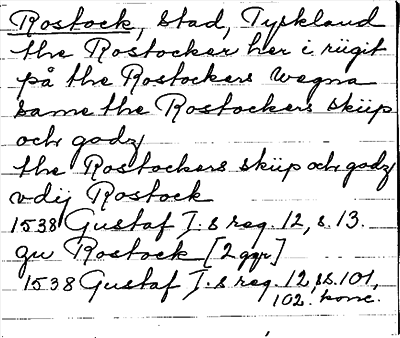 Rostock, stad, Tyskland
the Rostocker her i rügit
på the Rostockers wegna
same the Rostockers sküp
och godz
the Rostockers sküp och godz
vdij Rostock
1538 Gustaf I.s reg. 12, s. 13.
zu Rostock [2 ggr]
1538 Gustaf I.s reg. 12, ss. 101,
102. konc.